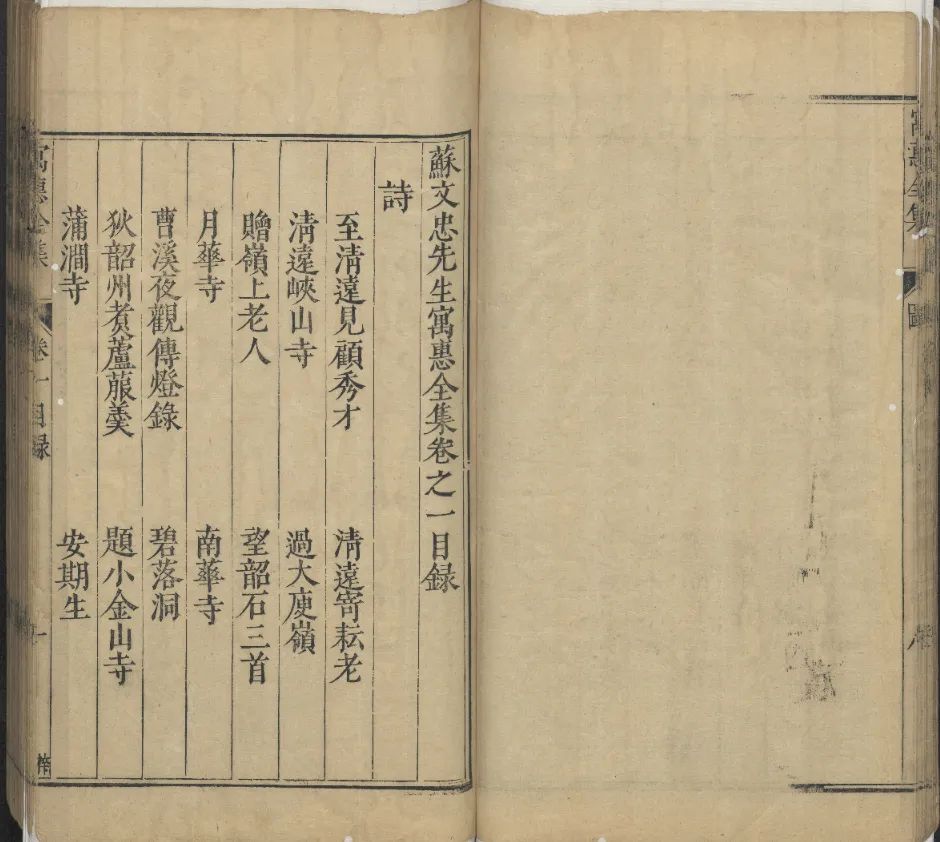 寓惠全集
圖
蘇文忠先生寓惠全集卷之一目録
詩
至清遠見顧秀才
清遠寄耘老
清遠峽山寺
過大庾嶺
贈嶺上老人
望韶石三首
月華寺
南華寺
曹溪夜觀傳燈錄
碧落洞
狄韶州煑蘆菔羹
題小金山寺
蒲澗寺
安期生
寓惠全集
卷一目録
一